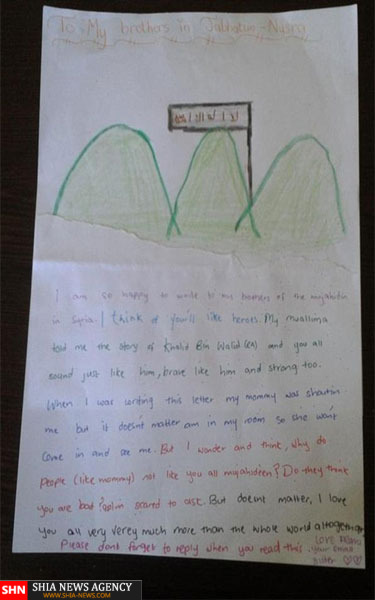 To My brothers in Jabhatun-Nusra
I am so happy to write to my brothers of the mujahidin
in Syria. I think of you'll like heroes. My mualima
told me the story of Khalid Bin Walid (RA) and you all
sound just like him, brave like him and strong too.
When I was writing this letter my mommy was shoutin
me but it doesnt matter am in my room so she wont
come in and see me. But I wonder and think, why do
people (like mommy) not like you all mujahideen? Do they think
you are bad? scared to ask. But doesnt matter, I love
you all very verey much more than the whole world altogether
Please dont forget to reply when you read this. your
Love
sister
SHN SHIA NEWS AGENCY
WWW.SHIA-NEWS.COM